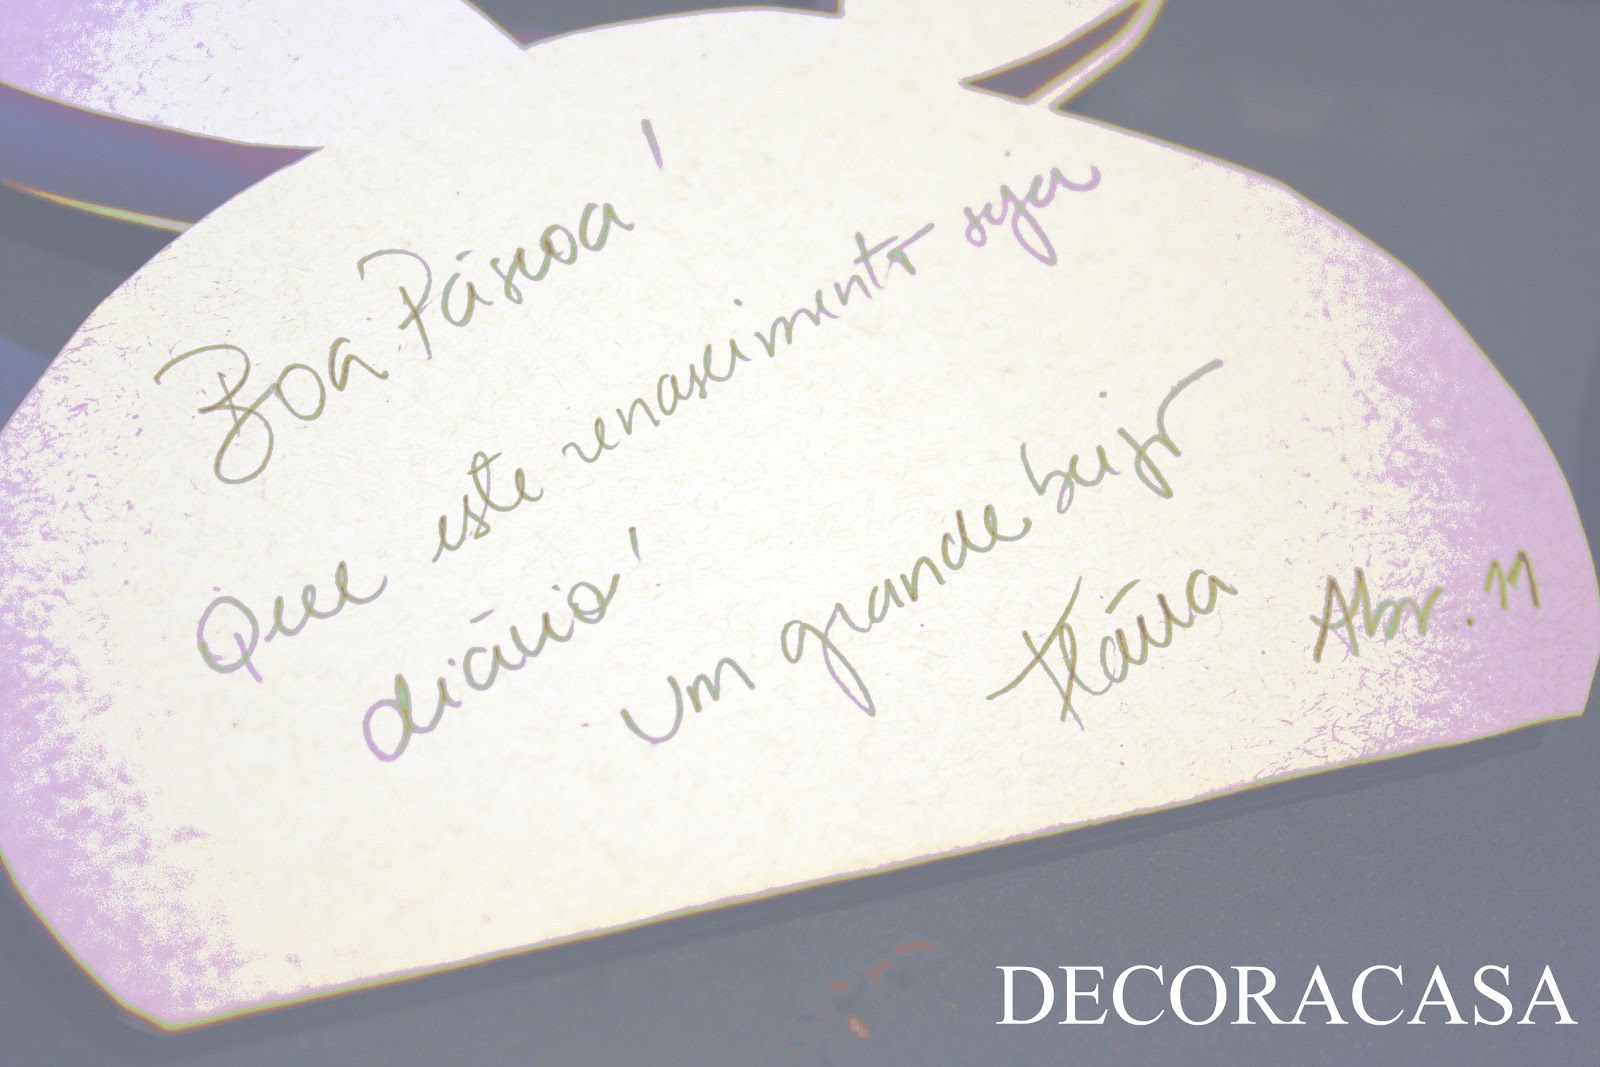 Boa Páscoa!
Que este renascimento seja
diário!
Um grande beijo
Flávia Abr. 11
DECORACASA